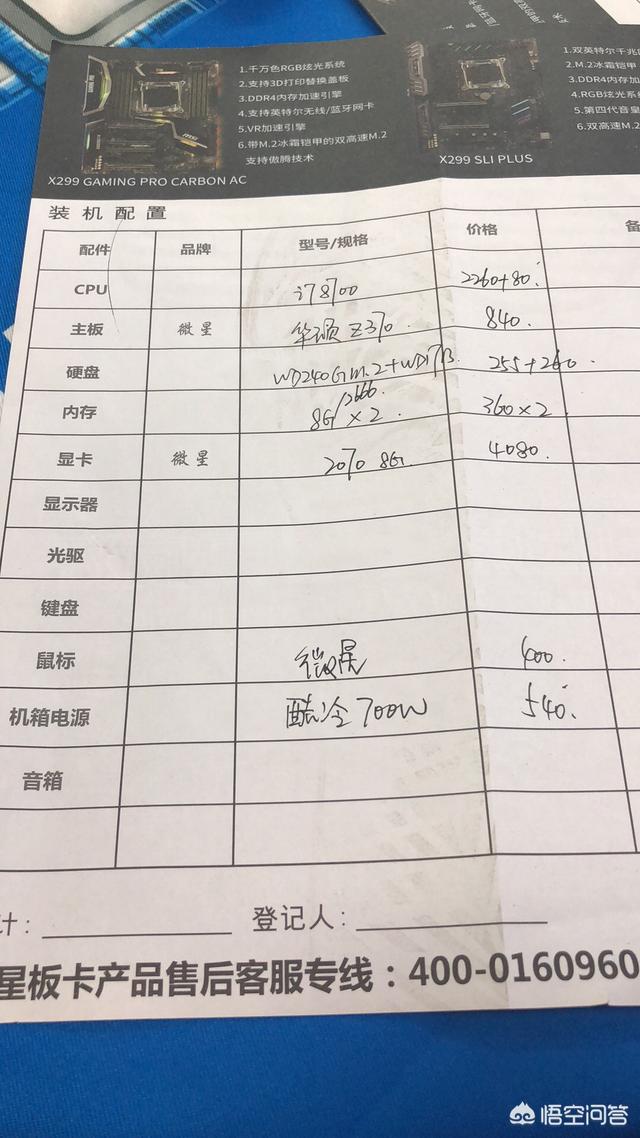 1.千万色RGB炫光系统
2.支持3D打印替换盖板
3.DDR4内存加速引擎
4.支持英特尔无线/蓝牙网卡
5.VR加速引擎
6.带M.2冰霜铠甲的双高速M.2
支持傲腾技术
X299 GAMING PRO CARBON AC
1.双英特尔千兆
2.M.2冰霜铠甲
3.DDR4内存加速
4.RGB炫光系
5.第四代音皇
6.双高速M.2
X299 SLI PLUS
装机配置
配件 品牌 型号/规格 价格 备
CPU i7 8700 2260+80
主板 微星 华硕 Z370 840
硬盘 WD240G M.2+WD1TB 255+260
内存 8G/2666 ×2 360×2
显卡 微星 2070 8G 4080
显示器
光驱
键盘
鼠标 微星 400
机箱电源 酷冷700W 540
音箱
计: 登记人:
星板卡产品售后客服专线:400-0160960
悟空问答